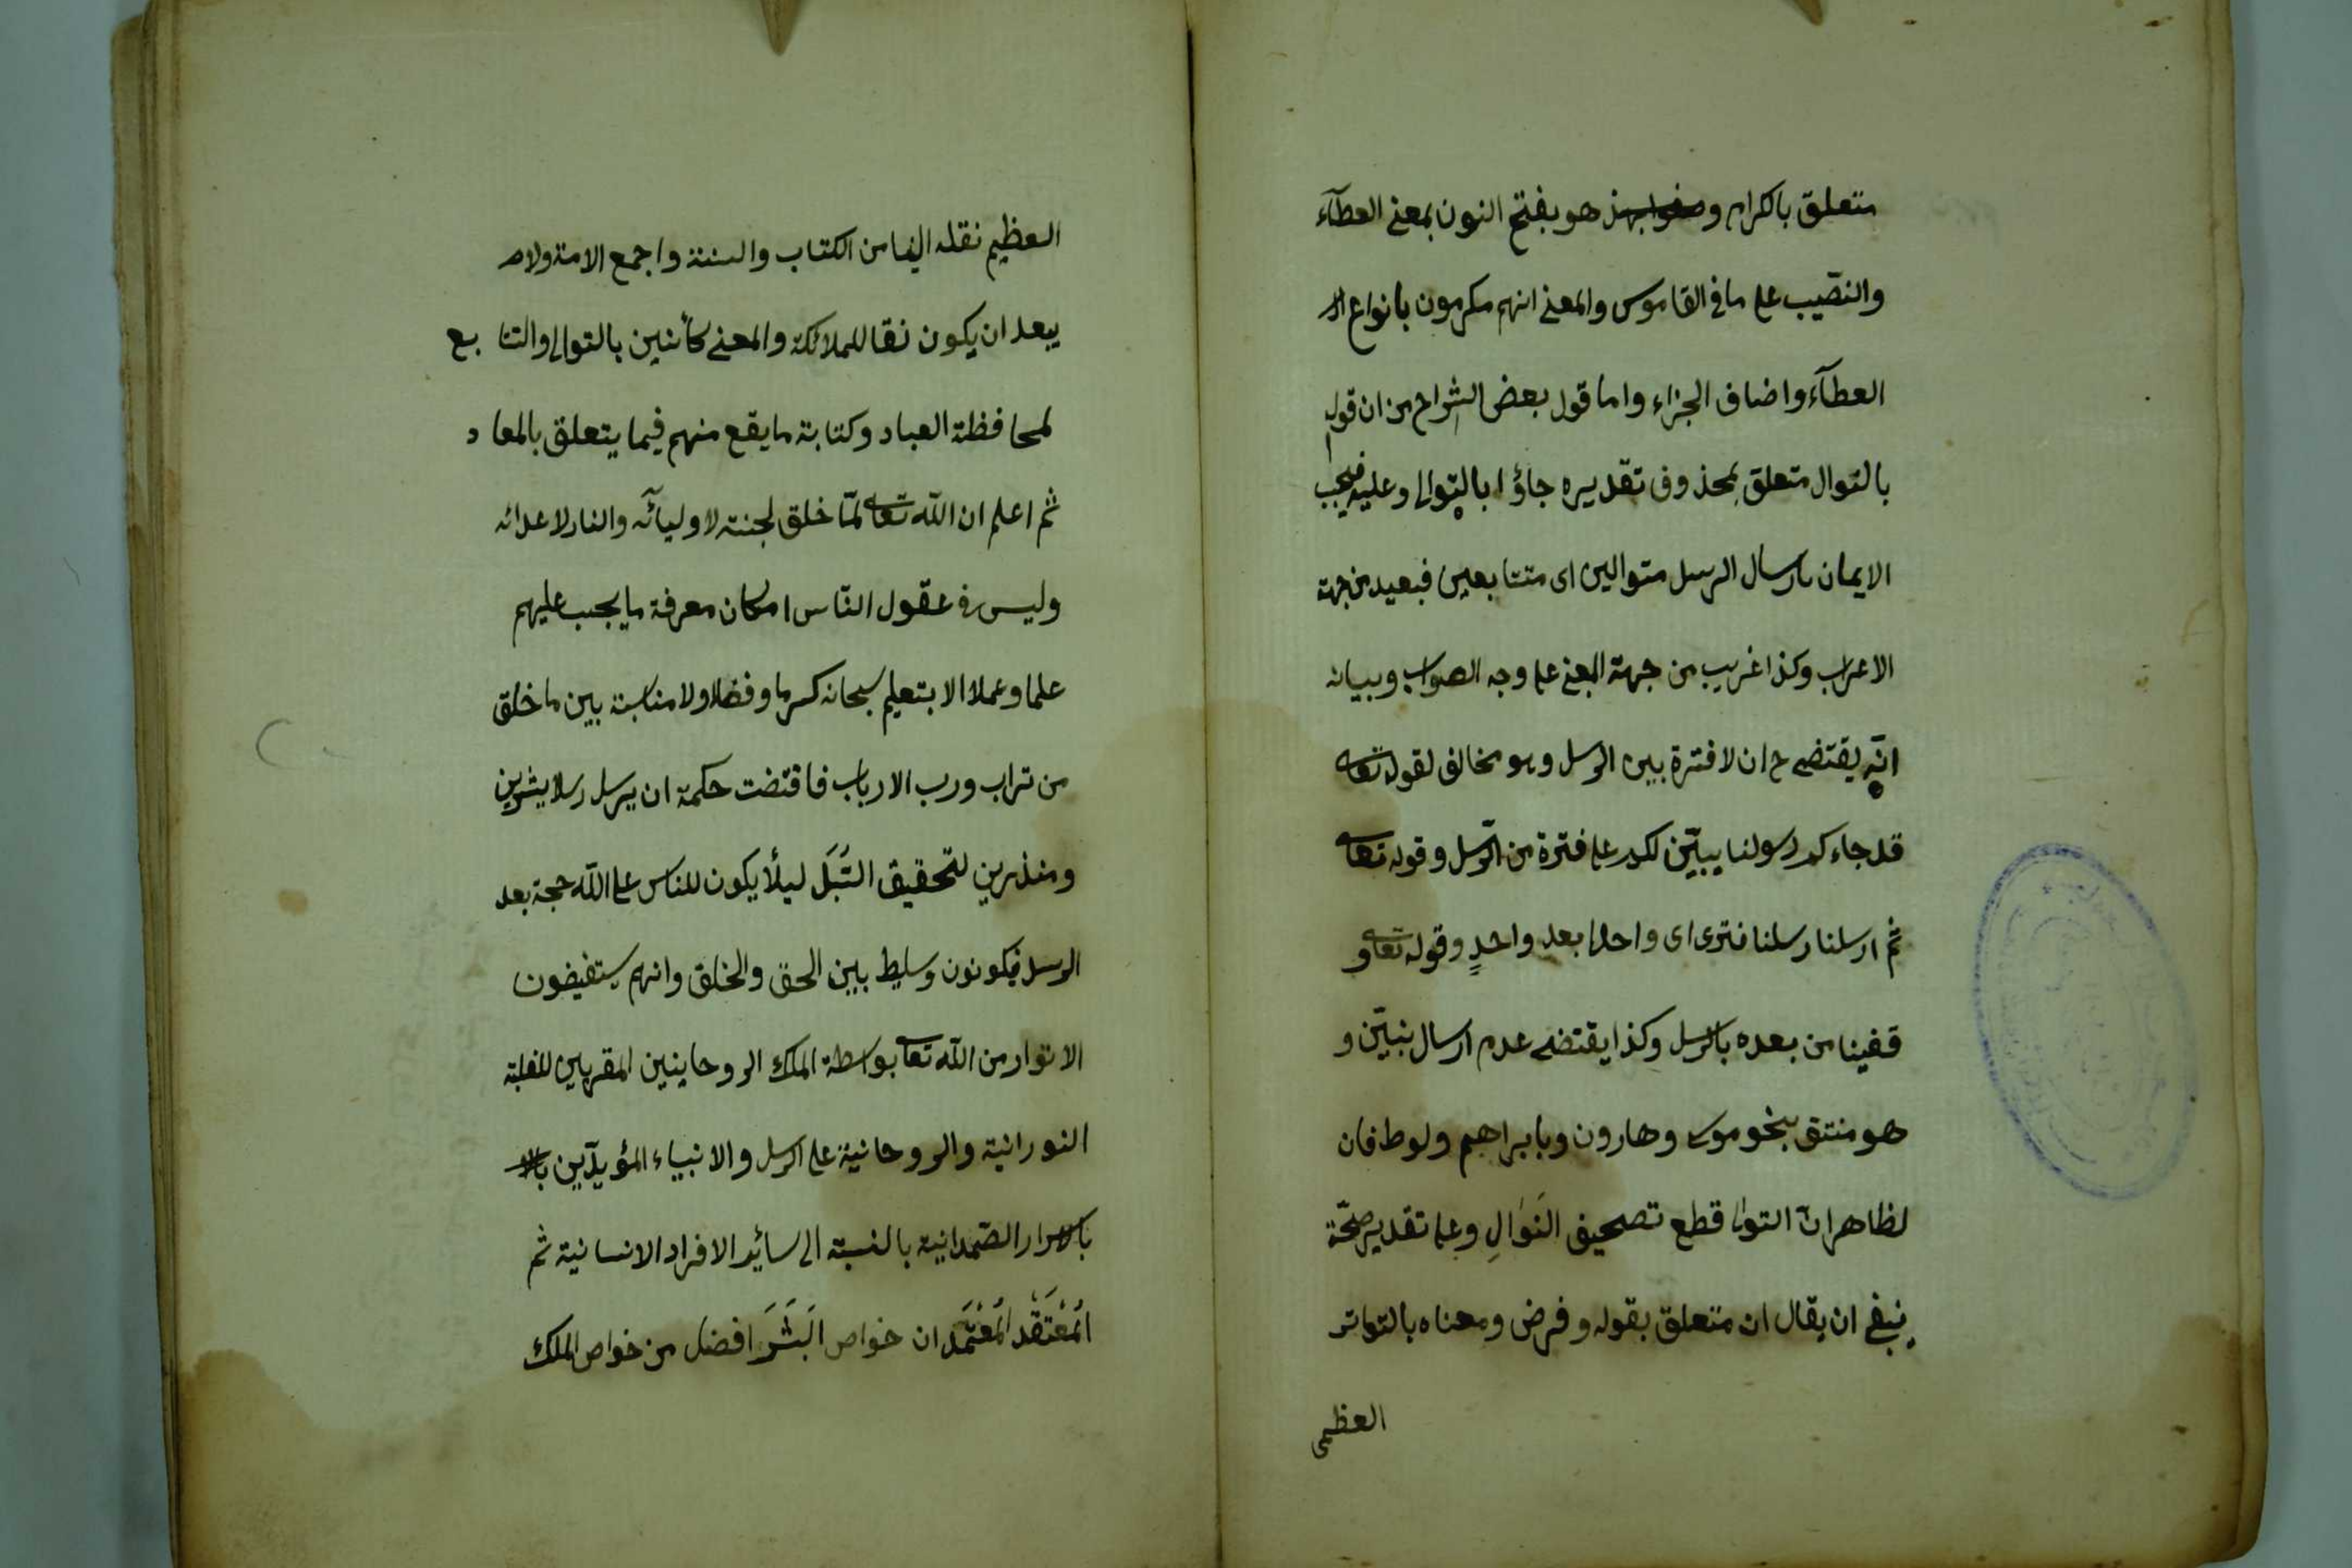 متعلق بالكرام و هو بفتح النون بمعنى العطآء
والنصّيب على ما فى القاموس والمعنى انهم مكرمون بانواع
العطآء واضاف الجزاء واما قول بعض الشراح من ان قوله
بالتوال متعلق بمحذوف تقديره جاؤا بالتوالى وعليه فيجب
الايمان بارسال الرسل متوالين اى متتابعين فبعيد من جهة
الاعراب وكذا غريب من جهة المعنى على وجه الصواب وبيانه
انّه يقتضى ح ان لا فترة بين الرسل وهو مخالف لقوله تعالى
قد جاءكم رسولنا يبيّن لكم على فترة من الرّسل وقوله تعالى
ثم ارسلنا رسلنا فترى اى واحدا بعد واحدٍ وقوله تعالى و
قفينا من بعده بالرسل وكذا يقتضى عدم ارسال نبيّن و
هو منتق بنحو موسى وهارون وبابراهيم ولوط فان
لظاهر انّ التوا قطع تصحيف النَوَالِ وعلى تقدير صحّة
ينبغى ان يقال ان متعلق بقوله وفرض ومعناه بالتواتر
العظمى
العظيم نقله الينا من الكتاب والسنة واجمع الامة ولا
يبعد ان يكون نقا للملائكة والمعنى كأننين بالتوالى والتتا بع
لمحافظة العباد وكتابة ما يقع منهم فيما يتعلق بالمعا د
ثم اعلم ان الله تعالى لمّا خلق لجنة لاوليآئه والنار لاعدائه
وليس فى عقول النّاس امكان معرفة ما يجب عليهم
علما وعملا الا بتعليم سبحانه كرما وفضلا ولا مناسبة بين ما خلق
من تراب ورب الارباب فاقتضت حكمة ان يرسل رسلا يبشرين
ومنذرين لتحقيق السُبَل ليلأ يكون للناس على الله حجة بعد
الرسل فيكونون وسليط بين الحق والخلق وانهم يستفيضون
الانوار من الله تعالى بواسطة الملك الروحاينين المقربين للغلبة
النورانية والروحانية على الرسل والانبياء المؤيدّين
بالاسرار الصّمدانية بالنسبة الى سائير الافراد الانسانية ثم
المُعْتَقَد المُعْتَمَد ان خواص البَشَرَ افضل من خواص الملك